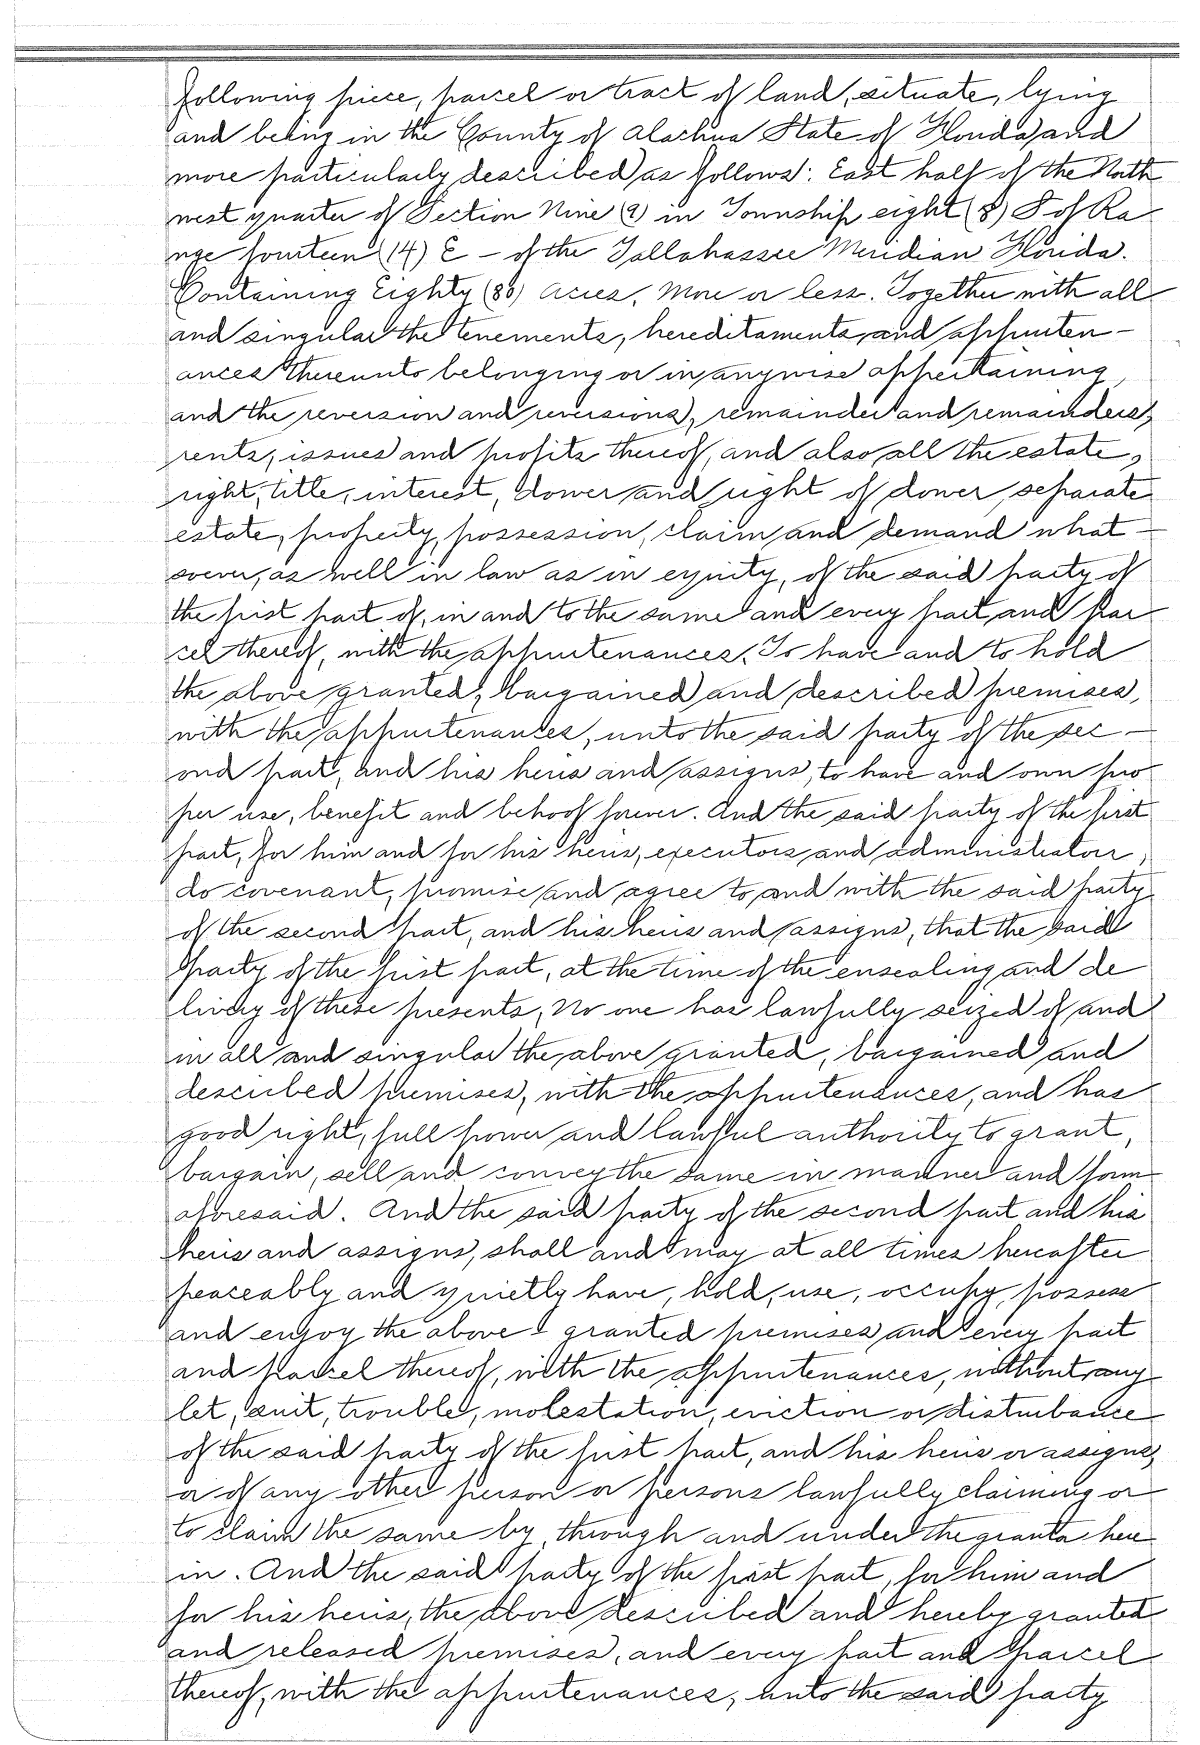 following piece, parcel or tract of land, situate, lying
and being in the County of Alachua State of Florida and
more particularly described as follows: East half of the North
west quarter of Section Nine (9) in Township eight (8) S of Ra
nge fourteen (14) E – of the Tallahassee Meridian Florida.
Containing Eighty (80) Acres, More or less. Together with all
and singular the tenements, hereditaments and appurten-
ances thereunto belonging or in anywise appertaining,
and the reversion and reversions, remainder and remainders,
rents, issues and profits thereof, and also all the estate,
right, title, interest, dower and right of dower separate
estate, property, possession, claim and demand what-
soever, as well in law as in equity, of the said party of
the first part of, in and to the same and every part and par
cel thereof, with the appurtenances. To have and to hold
the above granted, bargained and described premises,
with the appurtenances, unto the said party of the sec-
ond part, and his heirs and assigns, to have and own pro
per use, benefit and behoof forever. And the said party of the first
part, for him and for his heirs, executors and administrators,
do covenant, promise and agree to and with the said party
of the second part, and his heirs and assigns, that the said
party of the first part, at the time of the ensealing and de
livery of these presents, No one has lawfully seized of and
in all and singular the above granted, bargained and
described premises, with the appurtenances, and has
good right, full power and lawful authority to grant,
bargain, sell and convey the same in manner and form
aforesaid. And the said party of the second part and his
heirs and assigns, shall and may at all times hereafter
peaceably and quietly have, hold, use, occupy, possess
and enjoy the above granted premises and every part
and parcel thereof, with the appurtenances, without any
let, suit, trouble, molestation, eviction or disturbance
of the said party of the first part, and his heirs or assigns,
or of any other person or persons lawfully claiming or
to claim the same by, through and under the grantor here
in. And the said party of the first part, for him and
for his heirs, the above described and hereby granted
and released premises, and every part and parcel
thereof, with the appurtenances, unto the said party